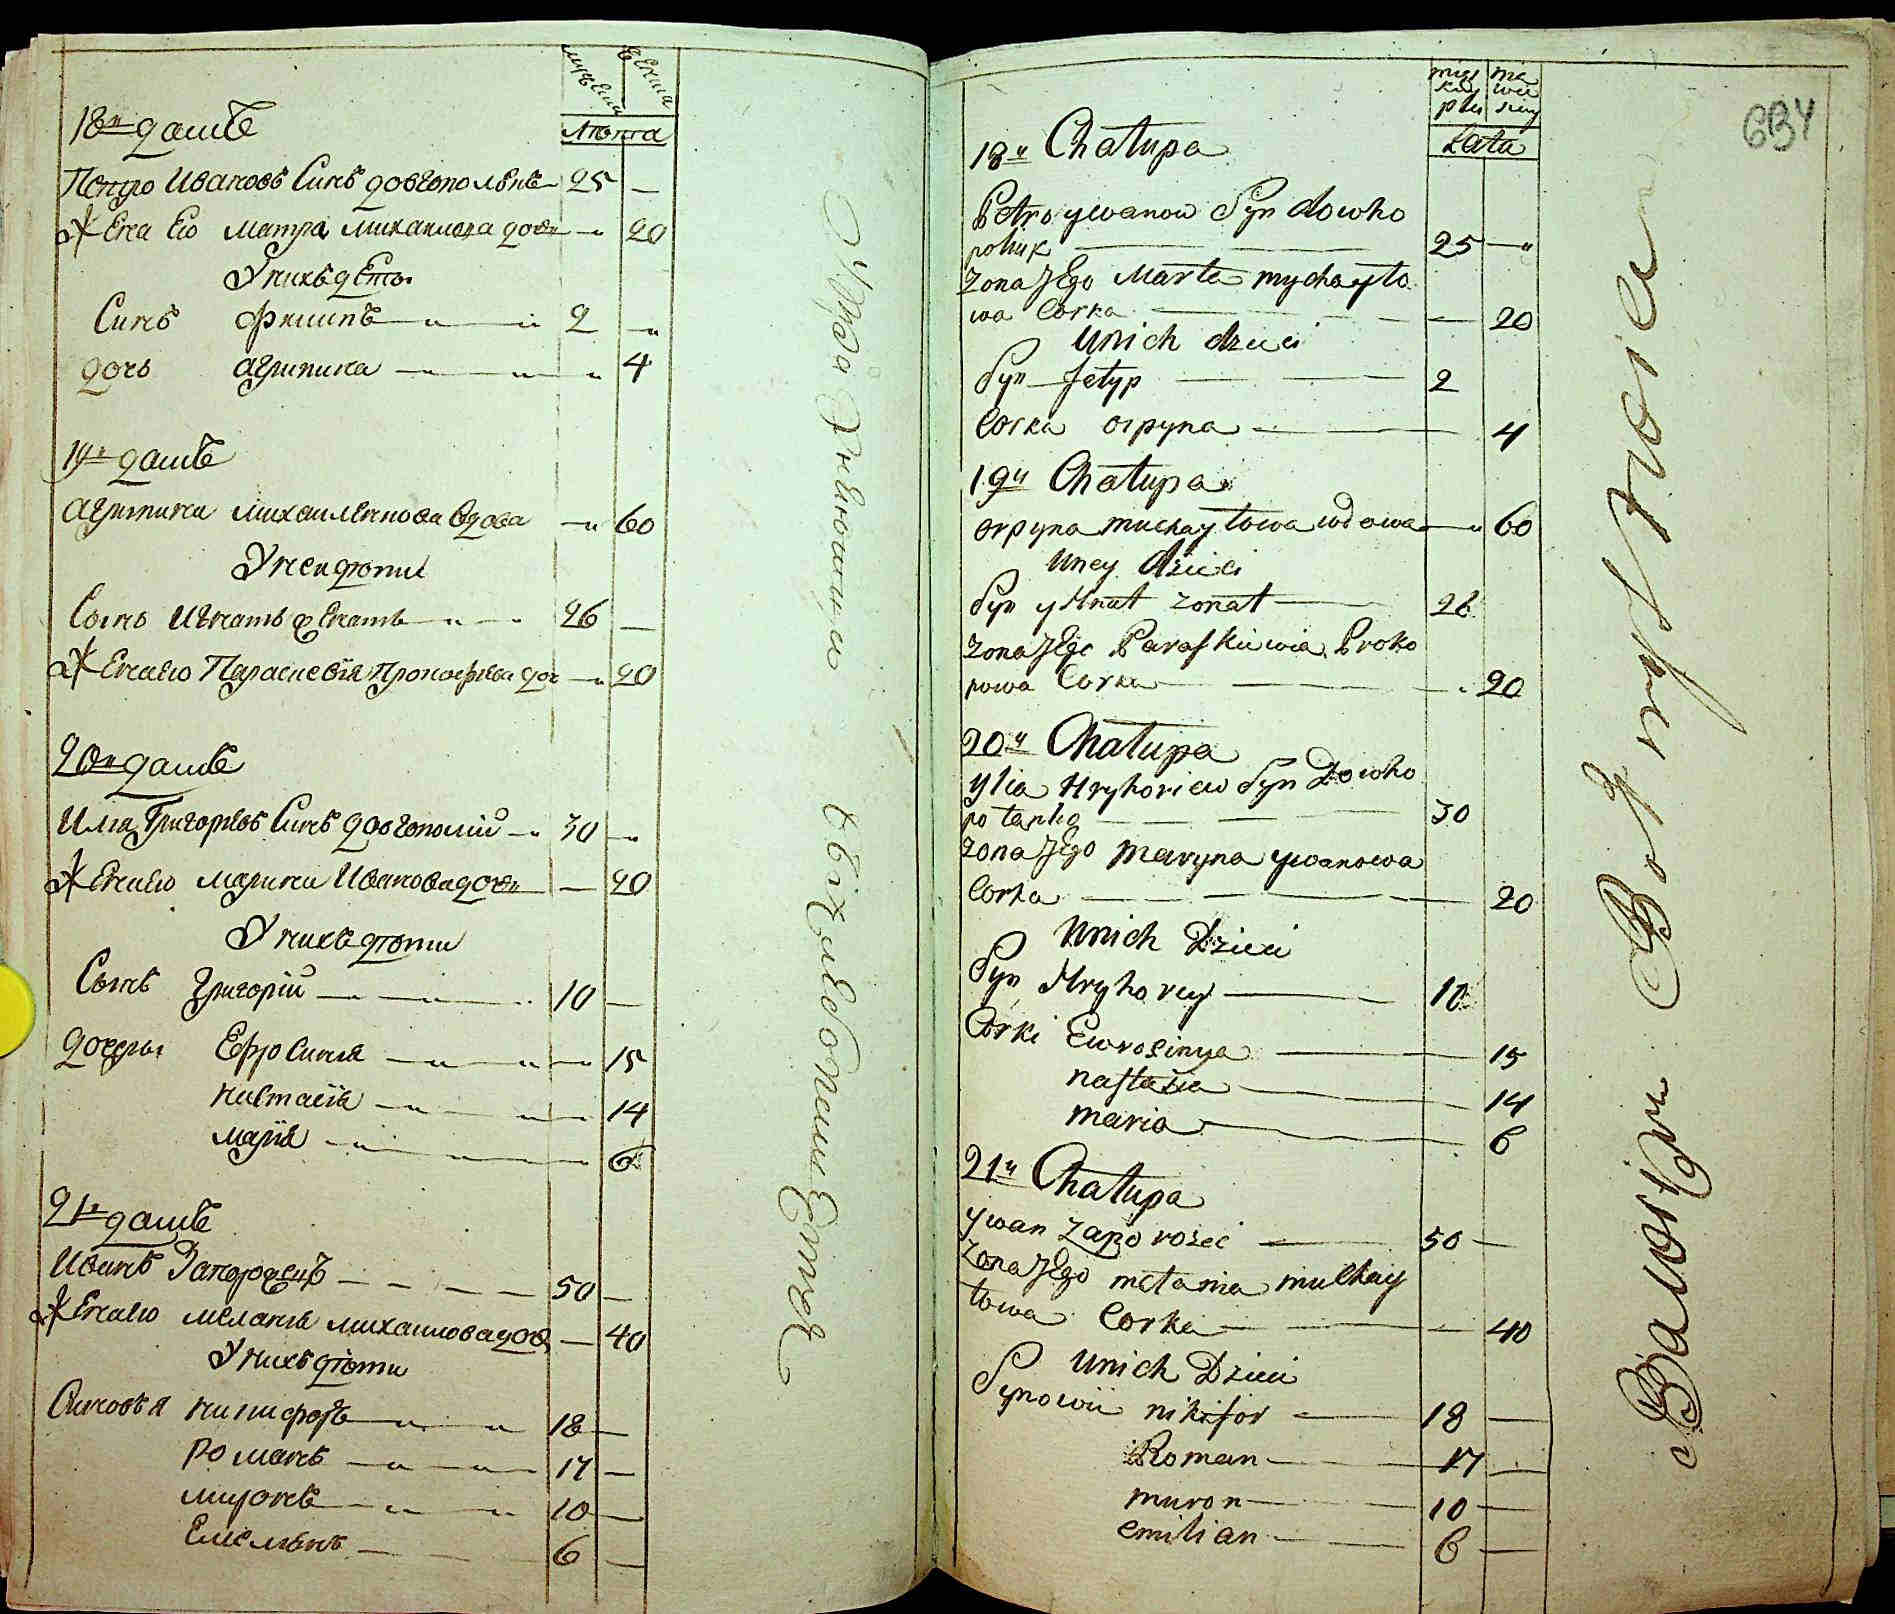 мужеска
женска
Лѣта
18й домъ
Петро Ивановъ Синъ довгополикъ 25 —
Жена Его Матра Михаилова дочь — 20
У нихъ дѣти
Синъ Филипъ 2 —
дочь Агрипина 4
19й домъ
Агрипина Михаиленкова вдова — 60
У неи дѣти
Сынъ Игнатъ женатъ 26 —
Жена Его Параскевія Прокофіева доч — 20
20й домъ
Илиа Григоріевъ Синъ довгополій 30 —
Жена Его Марина Иванова дочь — 20
У нихъ дѣти
Сынъ Григорій 10 —
дочери Ефросиниа 15
Настасіа 14
Маріа 6
21й домъ
Иванъ Запорожецъ 50 —
Жена Его Меланиа Михаилова доч — 40
У нихъ дѣти
Синовья Никифоръ 18 —
Романъ 17 —
Миронъ 10 —
Емельянъ 6 —
męz kiey płci
nie wie sciey
Lata
634
18ta Chałupa
Petro ywanow Syn dowho
poluk 25 —
Zona Jego Marta mychayło
wa Corka — 20
Unich dzieci
Syn filyp 2
Corka orpyna 4
19ta Chałupa
orpyna muchayłowa wdowa — 60
Uney dzieci
Syn yhnat zonat 26
Zona Jego Paraskiwia Proko
powa Corka 20
20ta Chałupa
ylia Hryhoriew Syn Dowho
30
Zona Jego Maryna ywanowa
Corka 20
Unich Dzieci
Syn Hryhorey 10
Corki Ewrosinya 15
nastazia 14
maria 6
21ta Chałupa
ywan zaporozec 50 —
Zona Jego mełania muchay
łowa Corka — 40
Unich Dzieci
Synowii nikifor 18 —
Roman 17 —
muron 10 —
emilian 6 —